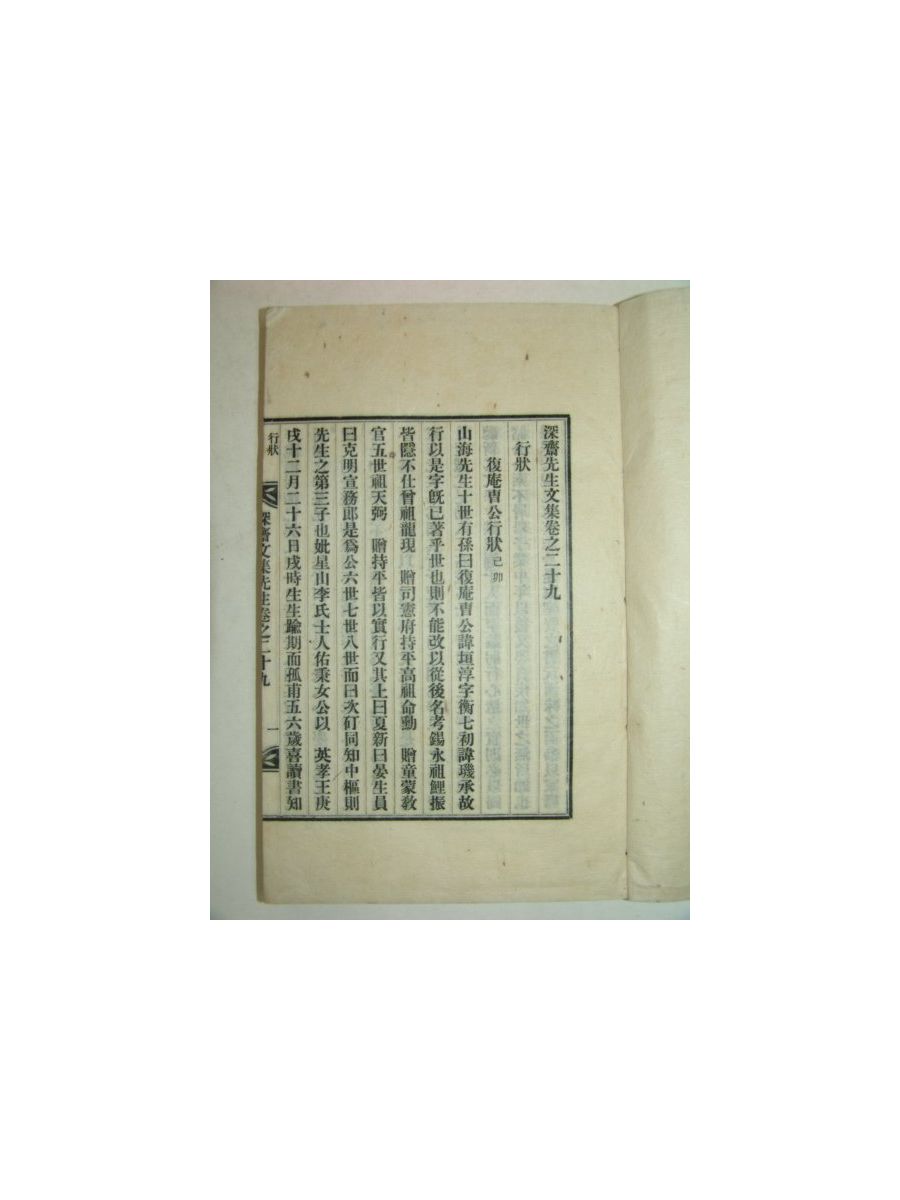 深齋先生文集卷之二十九
行狀
復庵曺公行狀 己卯
山海先生十世有孫曰復庵曺公諱垣淳字衡七初諱璣承故
行以是字旣已著乎世也則不能改以從後名考錫永祖鯉振
皆隱不仕曾祖龍現 贈司憲府持平高祖命勳 贈童蒙敎
官五世祖天弼 贈持平皆以實行又其上曰夏新曰晏生員
曰克明宣務郎是爲公六世七世八世而曰次矴同知中樞則
先生之第三子也妣星山李氏士人佑秉女公以 英孝王庚
戌十二月二十六日戌時生生踰期而孤甫五六歲喜讀書知
行狀
深齋文集先生卷之二十九
一